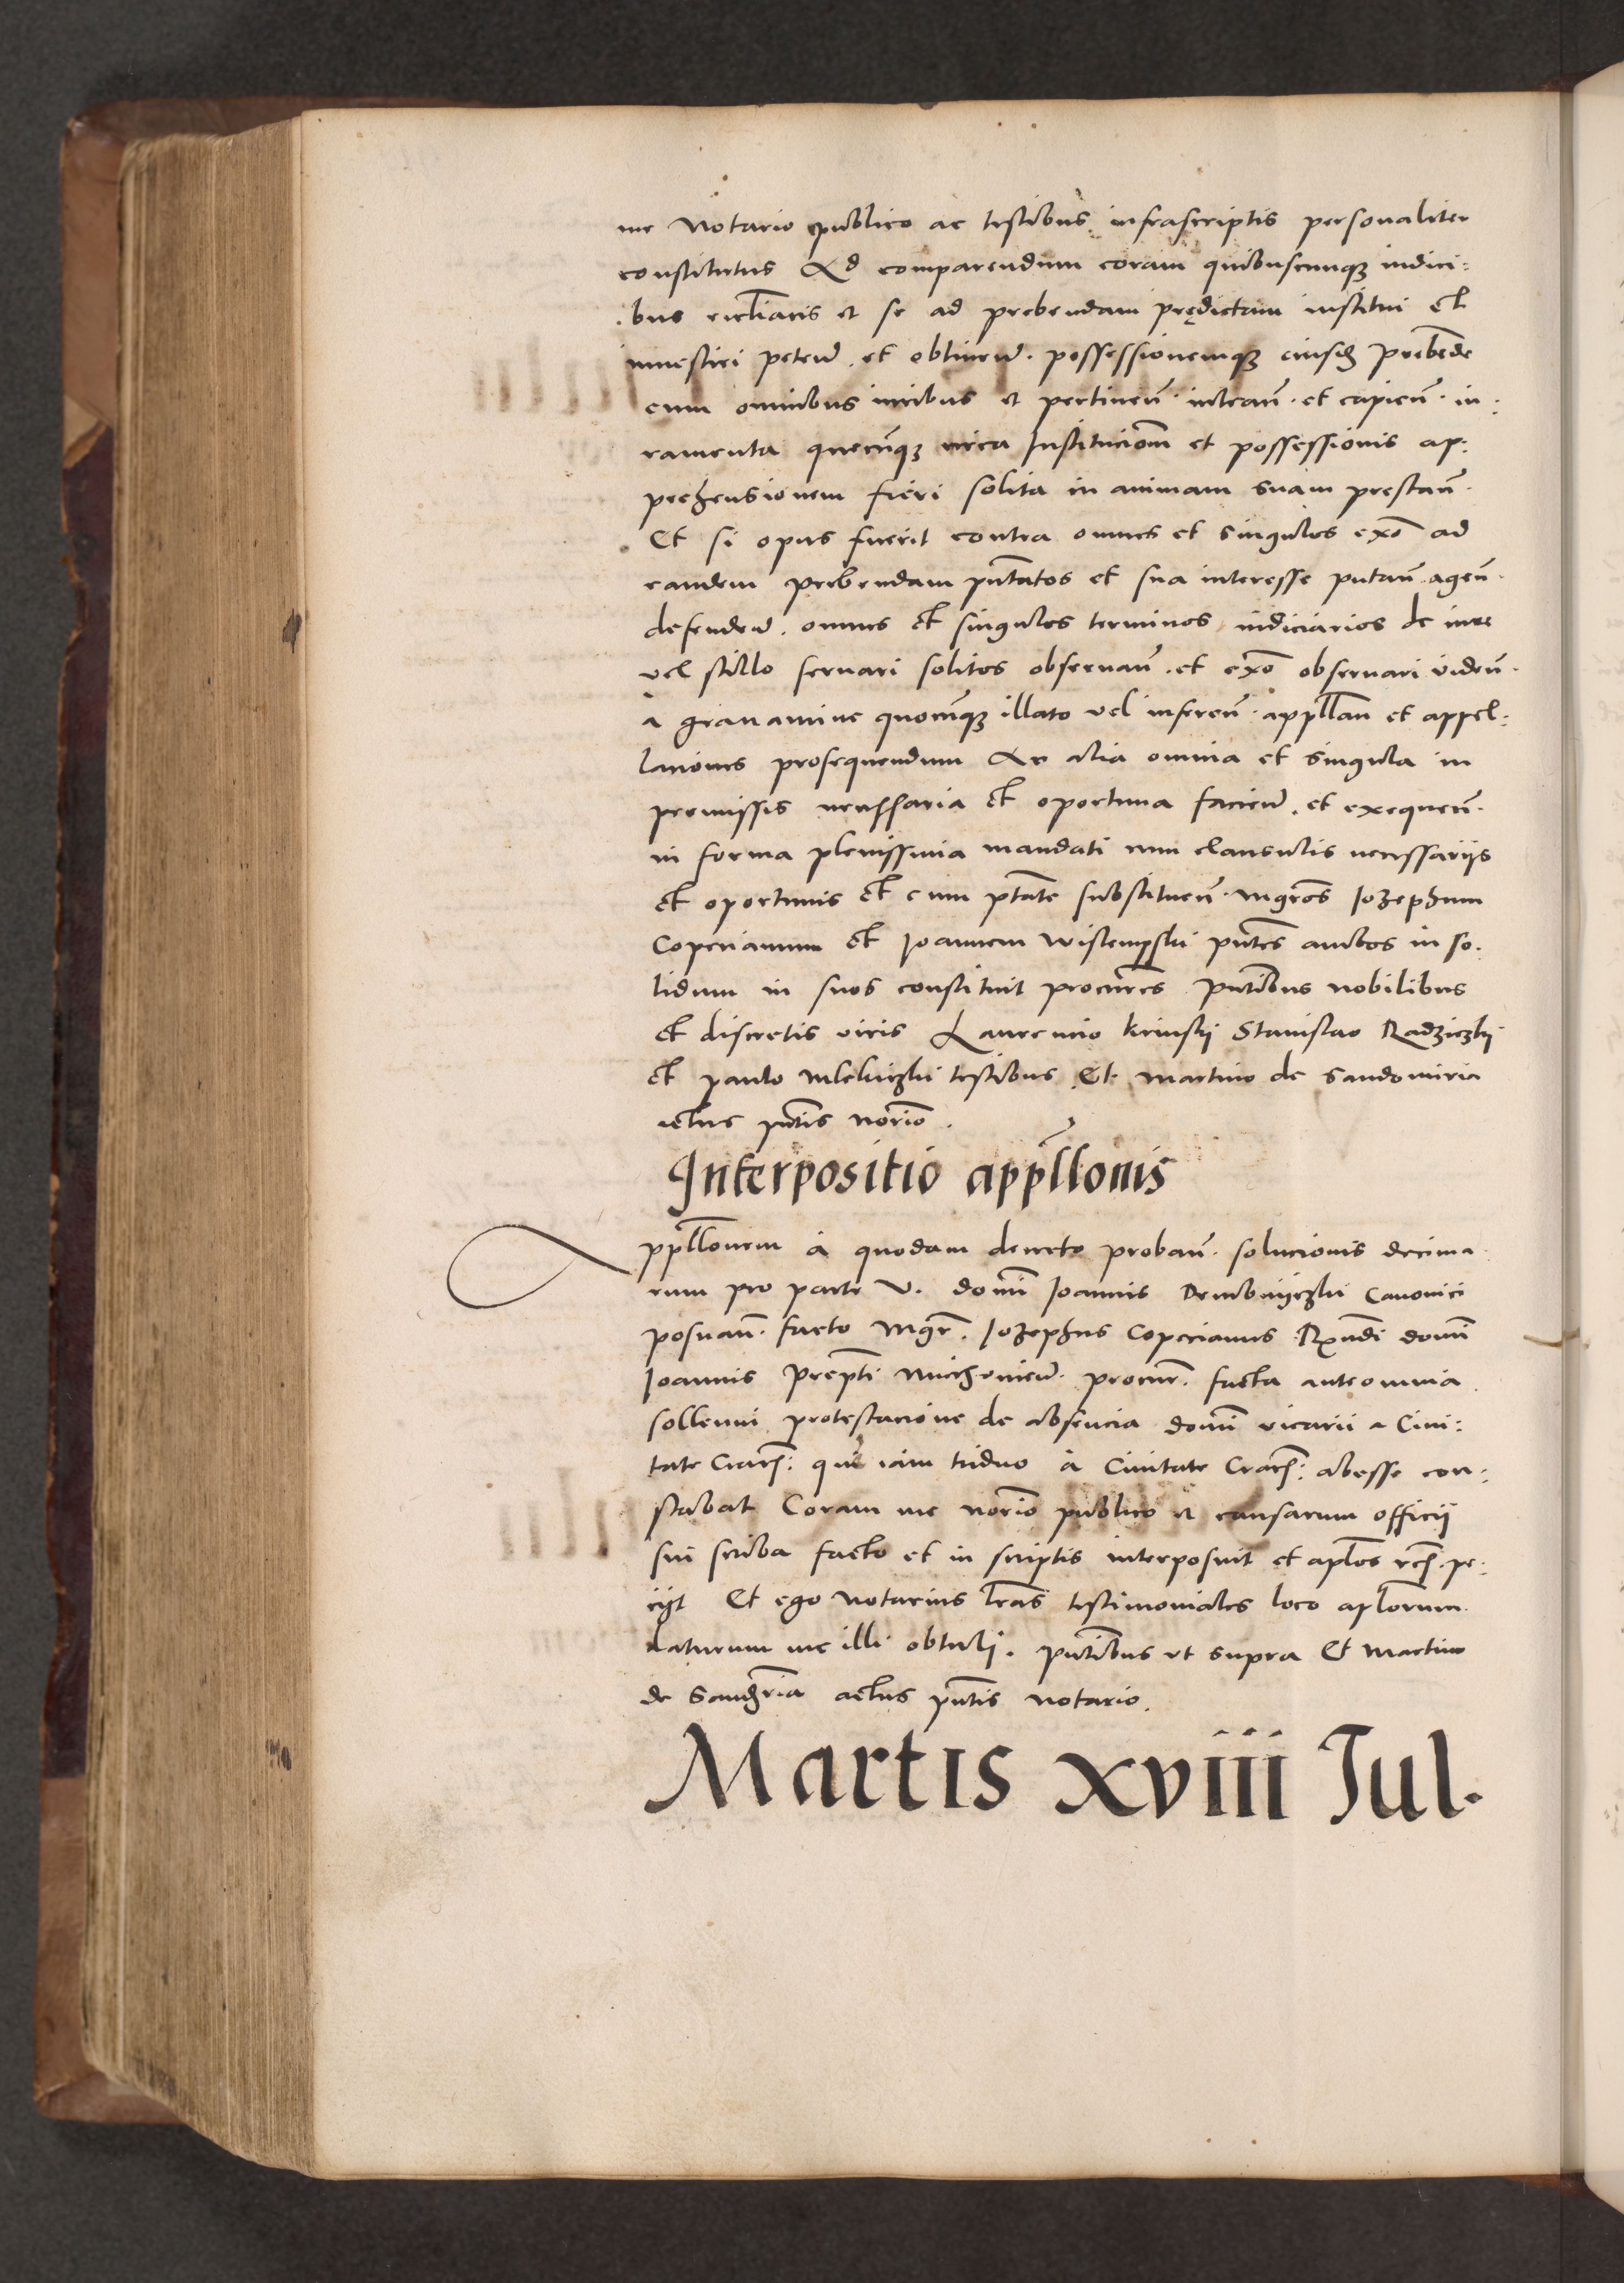 me Notario publico ac testibus infrascriptis personaliter
constitutus Ad comparendum coram quibuscunqꝫ iudici:
bus eccl̄iacis et se ad prebendam prędictam institui et
inuestiri peteñ. et obtineñ. possessionemqꝫ eiusdē Prebēde
cum omnibus iuribus et pertineñ. intrañ. et capieñ. iu:
ramenta quecūqꝫ circa Institucioēm et possessionis ap:
prehensionem fieri solita in animam suam prestañ.
Et si opus fuerit contra omnes et singulos exo ad
eandem prebendam pñtatos et sua interesse putañ. ageñ.
defendeñ. omnes et singulos terminos iudiciarios de iure
vel stillo seruari solitos obseruañ. et exo obseruari videñ.
a grauamine quocūqꝫ illato vel infereñ. appll̄añ et appel:
laciones prosequendum Ac alia omnia et singula in
premissis necessaria et oportuna facieñ. et exequeñ.
in forma plenissima mandati cum clausulis necessariis
et oportunis et cum ptāte substitueñ. mgros Iozephum
Copcrianum et Ioannem wistempski pñtes ambos in so:
lidum in suos constituit procures Pñtibus nobilibus
et discretis viris Laurencio krinskij Stanislao Radziczkij
et paulo mlekiczki testibus Et martino de Sandomiria
actus pñtis norio.
Interpositio appll̄onis
Appll̄onem a quodam decreto probañ. solucionis decima
rum pro parte V. domī Ioannis Dembnyczki Canonici
posnañ. facto Mgr. Iozephus Copcrianus Rx̄ndi domī
Ioannis Prepti miechouieñ. procur. facta anteomnia
sollenni protestacione de absencia domī vicarii a Ciui:
tate Cracꝭ: qui iam triduo a Ciuitate Cracꝭ: abesse con:
stabat Coram me norio publico et causarum officii
sui scriba facto et in scriptis interposuit et aplos rcꝭ. pe:
ciit Et ego Notarius lr̄as testimoniales loco aplorum
daturum me illi obtuli. Pñtibus vt supra Et Martino
de Sandria actus pñtis notario.
Martis xviii Jul.